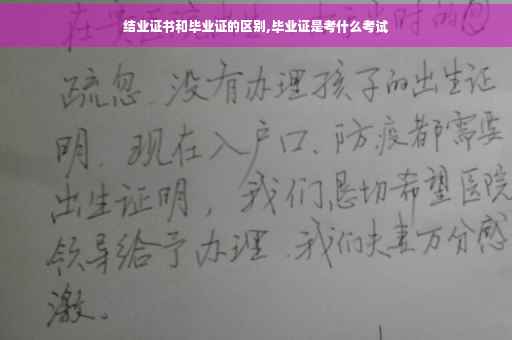 结业证书和毕业证的区别,毕业证是考什么考试
疏忽、没有办理孩子的出生证
明、现在入户口、防疫都需要
出生证明，我们恳切希望医院
领导给予办理、我们夫妻万分感
激。